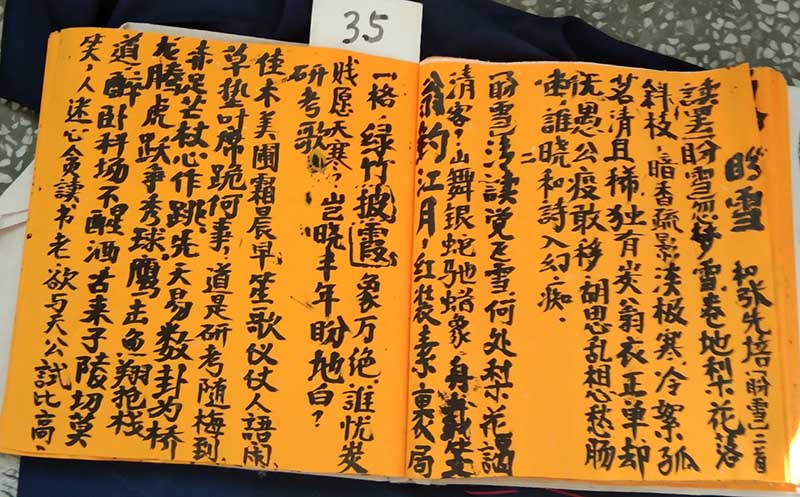 35
盼雪 和张先培「盼雪」二首
读罢盼雪忽移雪卷地梨花落
斜枝,暗香疏影淡极寒冷絮孤
茗清且稀独有炭翁衣正单却
忧愚公疫敢移 胡思乱相心愁肠
谁晓和詩入幻痴。
二
盼雪读说雪何处梨花谒
清客?山舞银蛇驰蜡象舟载笠
翁钓江月,红装素裹局
一格,绿竹披霞象万绝,谁忧炭
贱愿天寒?岂晓丰年盼地白?
研考歌
佳木美圃霜晨早笙歌仪仗人語闹
草垫叶席跪何事,道是研考随梅到
赤足芒杖心作跳,先天易数卦为桥
龙腾虎跃争秀球,鹰击鱼翔抢栈
道醉卧科场不醒酒古来子陵切莫
笑,人迷心贪读书老欲与天公試比高